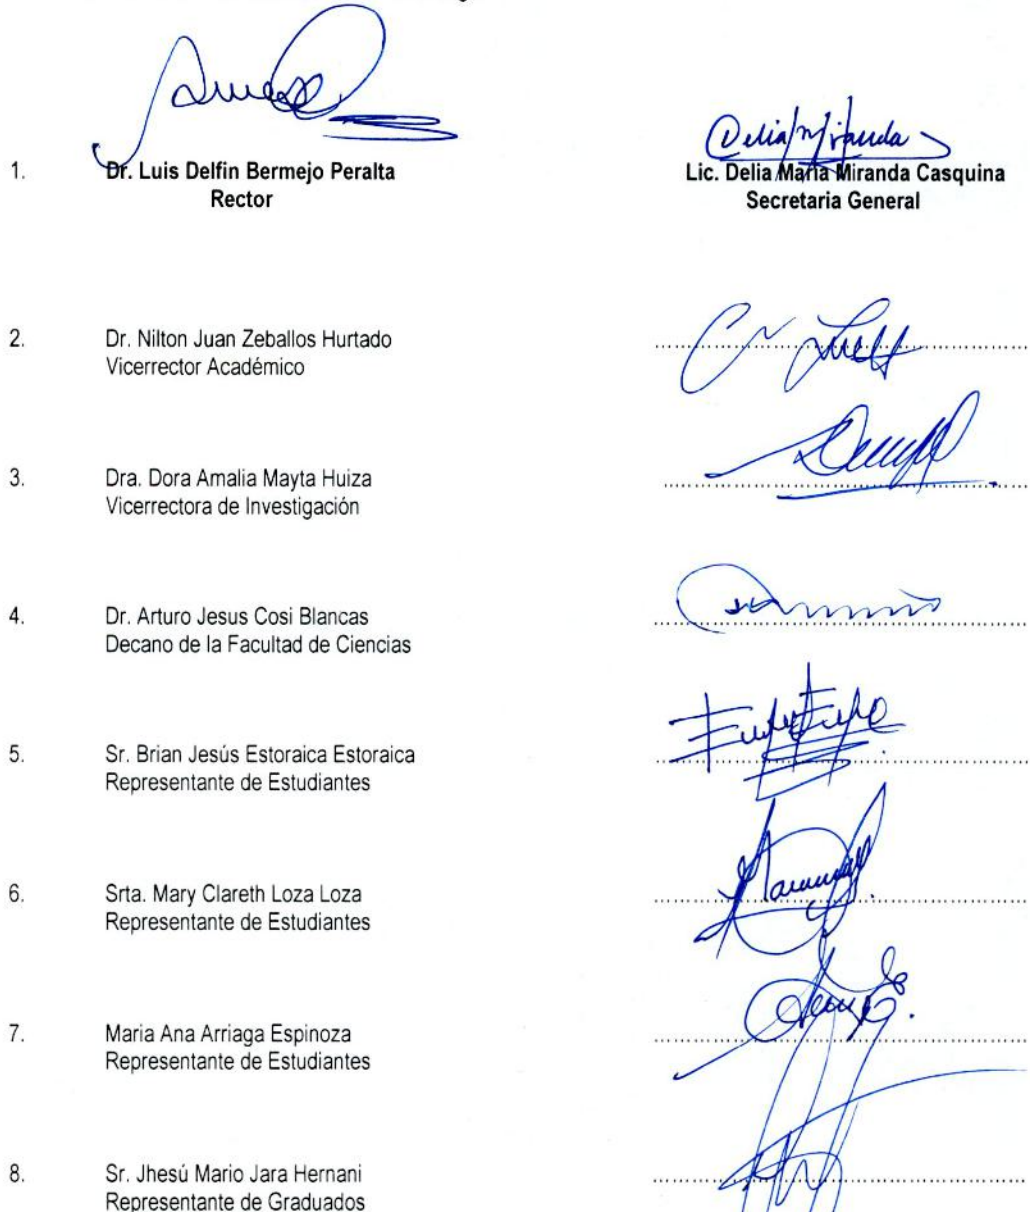 1. Dr. Luis Delfin Bermejo Peralta
Rector
Delia Miranda
Lic. Delia María Miranda Casquina
Secretaria General
2. Dr. Nilton Juan Zeballos Hurtado
Vicerrector Académico
3. Dra. Dora Amalia Mayta Huiza
Vicerrectora de Investigación
4. Dr. Arturo Jesus Cosi Blancas
Decano de la Facultad de Ciencias
5. Sr. Brian Jesús Estoraica Estoraica
Representante de Estudiantes
6. Srta. Mary Clareth Loza Loza
Representante de Estudiantes
7. Maria Ana Arriaga Espinoza
Representante de Estudiantes
8. Sr. Jhesú Mario Jara Hernani
Representante de Graduados